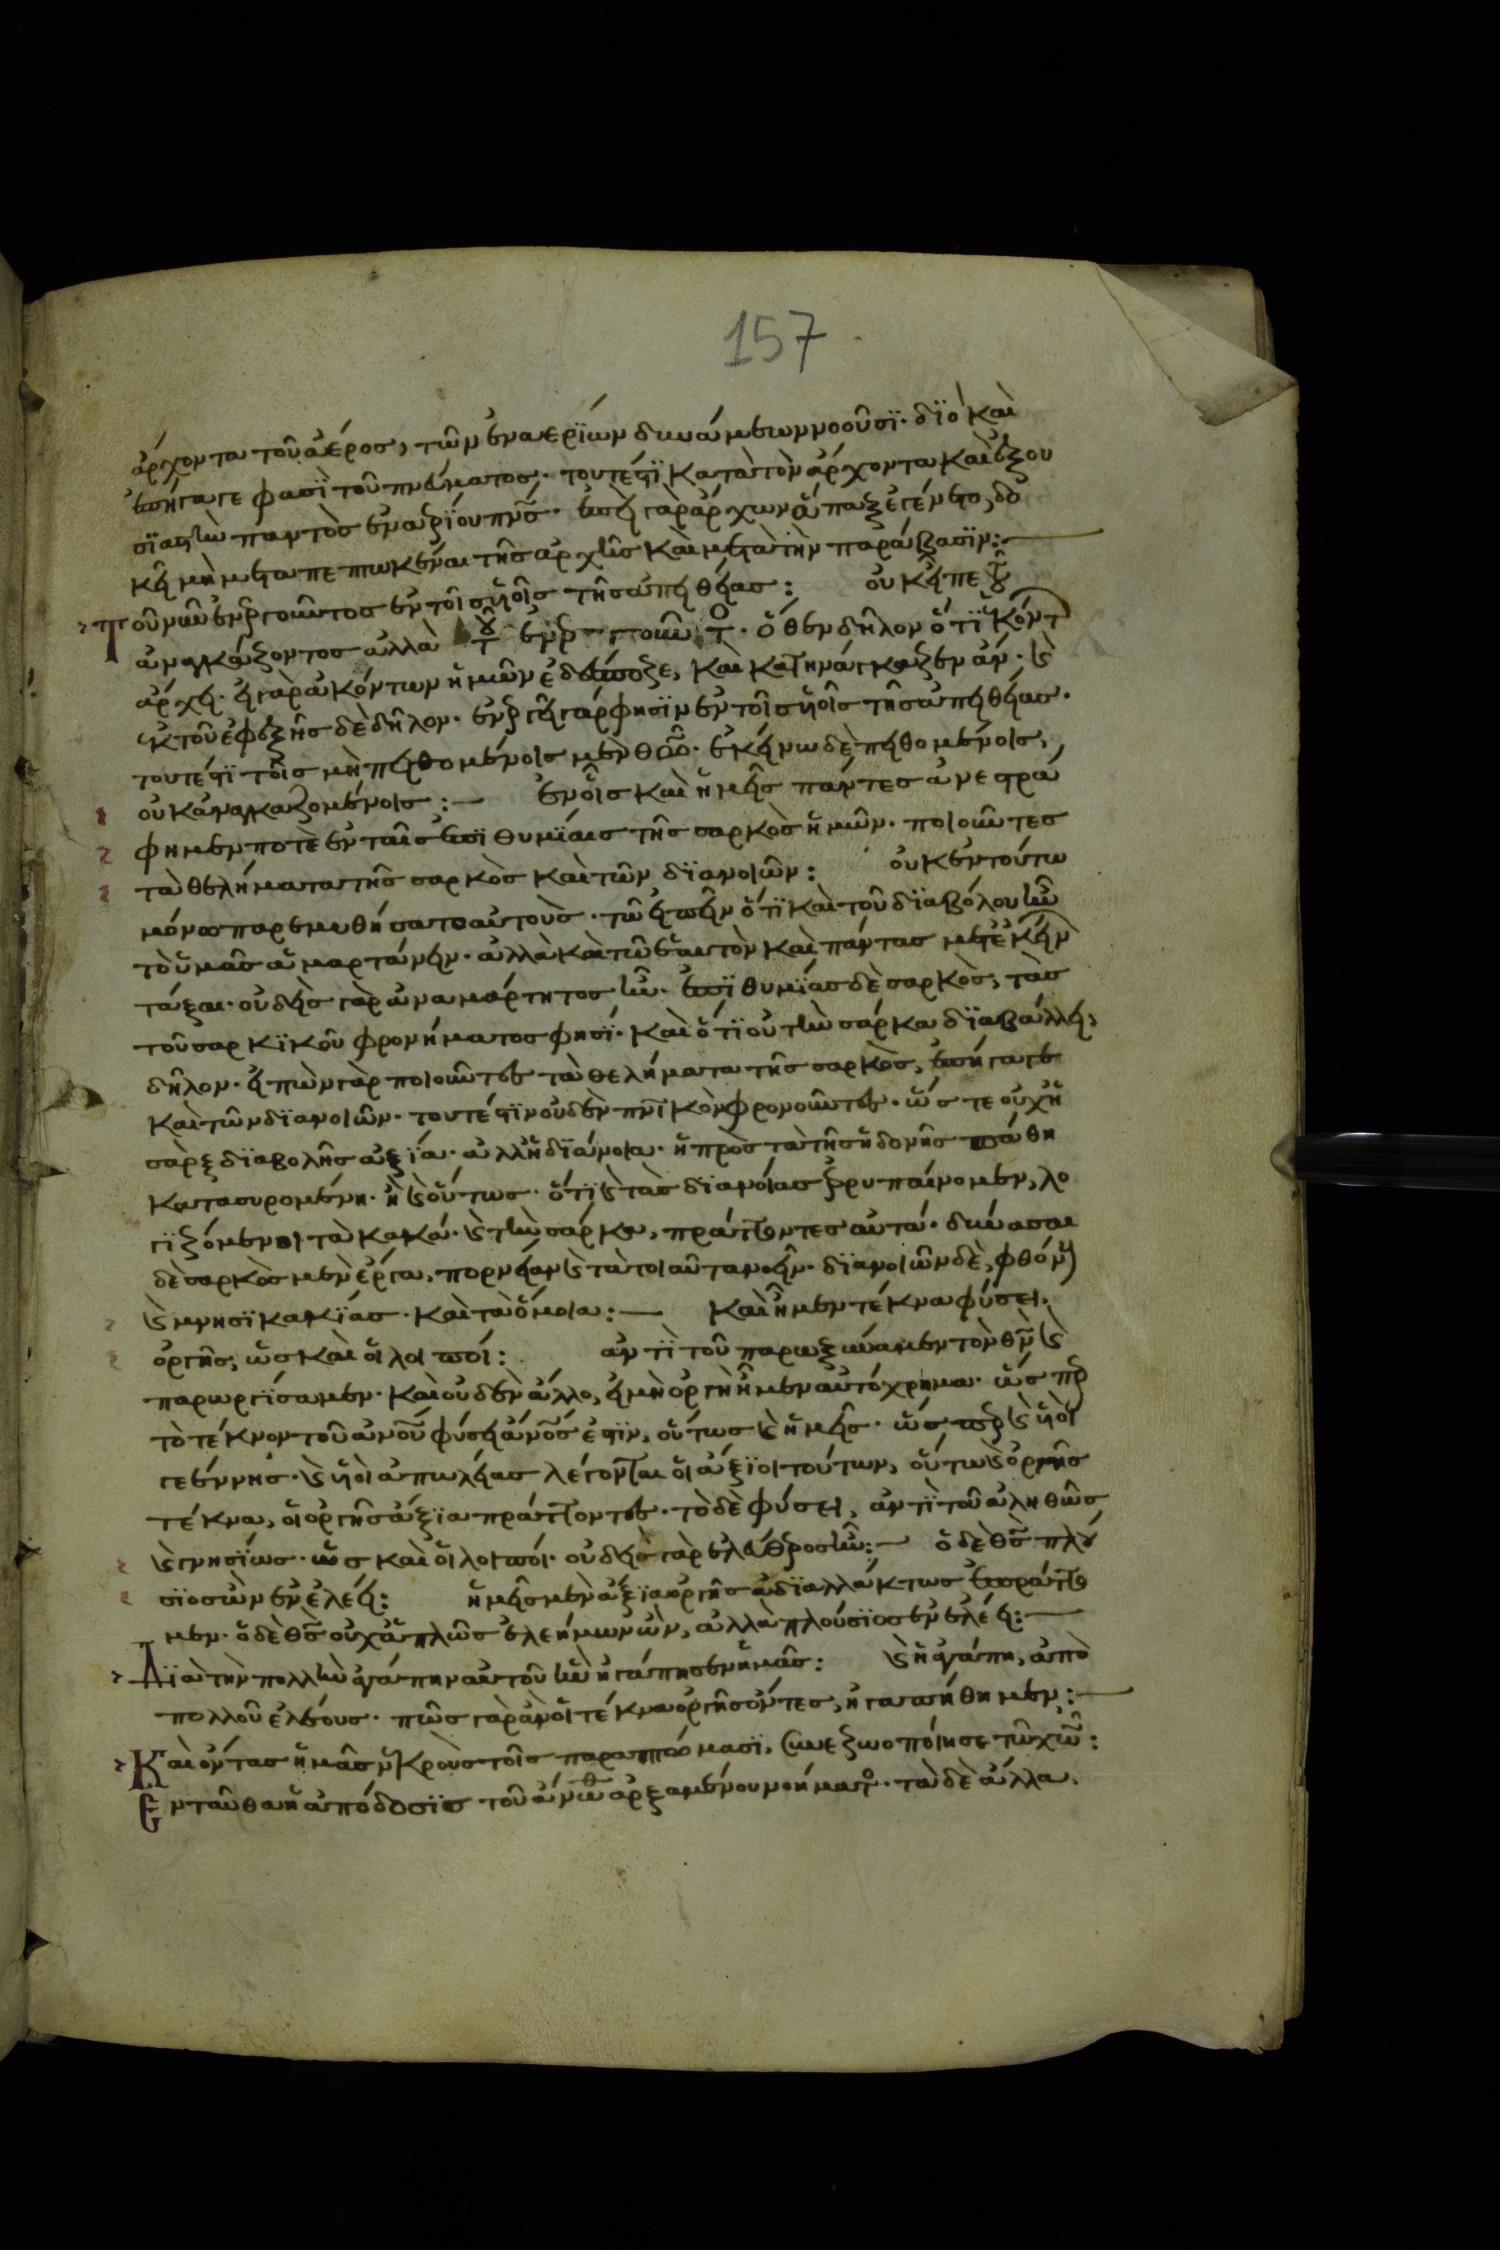 157
ἄρχοντα τοῦ ἀέρος, τῶν ἐναερΐων δυνάμεων νοοῦσϊ· δϊὸ καὶ
ἐπήγαγε φασὶ τοῦ πνεύματος· τουτέστϊ κατὰ τὸν ἄρχοντα καὶ ἐξου
σϊαστὴν παντὸς ἐναερίου πνς· ἐπεὶ γὰρ ἄρχων ἅπαξ ἐγένετο, δο
κεῖ μὴ μεταπεπτωκέναι τῆς ἀρχῆς καὶ μετὰ τὴν παράβασϊν:
Τοῦ νῦν ἐνεργοῦντος ἐν τοῖς υἱοῖς τῆς ἀπειθείας: οὐκ εἶπε τοῦ
ἀναγκάζοντος ἀλλὰ τοῦ ἐνεργοῦντος· ὅθεν δῆλον ὅτϊ ἑκόντων
ἄρχει· εἰ γὰρ ἀκόντων ἡμῶν ἐδέσποζε, καὶ κατηνάγκαζεν ἄν· καὶ
ἐκ τοῦ ἐφεξῆς δὲ δῆλον· ἐνεργεῖ γάρ φησϊν ἐν τοῖς υἱοῖς τῆς ἀπειθείας·
τουτέστϊ τοῖς μὴ πειθομένοις μὲν θῶ· ἐκείνω δὲ πειθομένοις,
οὐκ ἀναγκαζομένοις: ἐν οἷς καὶ ἡμεῖς πάντες ἀνεστρά
φημεν ποτὲ ἐν ταῖς ἐπϊθυμΐαις τῆς σαρκὸς ἡμῶν· ποιοῦντες
τὰ θελήματα τῆς σαρκὸς καὶ τῶν δϊανοιῶν: οὐκ ἐν τούτω
μόνω παρεμυθήσατο αὐτοὺς· τῶ εἰπεῖν ὅτϊ καὶ τοῦ δϊαβόλου ἦν
τὸ ὑμᾶς ἁμαρτάνειν· ἀλλὰ καὶ τῶ ἑαυτὸν καὶ πάντας μετ' ἐκείνων
τάξαι· οὐδεὶς γὰρ ἀναμάρτητος ἦν· ἐπϊθυμΐας δὲ σαρκὸς, τὰς
τοῦ σαρκϊκοῦ φρονήματος φησϊ· καὶ ὅτϊ οὐ τὴν σάρκα δϊαβάλλει,
δῆλον· εἰπὼν γὰρ ποιοῦντες τὰ θελήματα τῆς σαρκὸς, ἐπήγαγε
καὶ τῶν δϊανοιῶν· τουτέστϊν οὐδὲν πνϊκὸν φρονοῦντες· ὥστε οὐχ ἡ
σὰρξ δϊαβολῆς ἀξΐα· ἀλλ' ἡ δϊάνοια· ἡ πρὸς τὰ τῆς ἡδονῆς πάθη
κατασυρομένη· ἢ καὶ οὕτως· ὅτϊ καὶ τὰς δϊανοίας ῥυπαίνομεν, λο
γϊζόμενοι τὰ κακά· καὶ τὴν σάρκα, πράττοντες αὐτά· δύνασαι
δὲ σαρκὸς μὲν ἔργα, πορνείαν καὶ τὰ τοιαῦτα νοεῖν· δϊανοιῶν δὲ, φθόνον
καὶ μνησϊκακΐας· καὶ τὰ ὅμοια: καὶ ἦμεν τέκνα φύσει
ὀργῆς, ὡς καὶ οἱ λοιποί: ἀντϊ τοῦ παρωξύναμεν τὸν θν καὶ
παρωργϊσαμεν· καὶ οὐδὲν ἄλλο, εἰ μὴ ὀργὴ ἦμεν αὐτόχρημα· ὥσπερ
τὸ τέκνον τοῦ ἀνου φύσει ἀνος ἐστϊν, οὕτως καὶ ἡμεῖς· ὥσπερ καὶ υἱοὶ
γεέννης· καὶ υἱοὶ ἀπωλείας λέγονται οἱ ἄξϊοι τούτων, οὕτω καὶ ὀργῆς
τέκνα, οἱ ὀργῆς ἄξϊα πράττοντες· τὸ δὲ φύσει, ἀντϊ τοῦ ἀληθῶς
καὶ γνησΐως· ὡς καὶ οἱ λοιποί· οὐδεὶς γὰρ ἐλεύθερος ἦν: ὁ δὲ θς πλού
σϊος ὢν ἐν ἐλέει: ἡμεῖς μὲν ἄξϊα ὀργῆς ἀδϊαλλάκτως ἐπράττο
μεν· ὁ δὲ θς οὐχ ἁπλῶς ἐλεήμων ὢν, ἀλλὰ πλούσϊος ἐν ἐλέει:
Δϊὰ τὴν πολλὴν ἀγάπην αὐτοῦ ἣν ἠγάπησεν ἡμᾶς: καὶ ἡ ἀγάπη, ἀπὸ
πολλοῦ ἐλέους· πῶς γὰρ ἂν οἱ τέκνα ὀργῆς ὄντες, ἠγαπήθημεν:
Καὶ ὄντας ἡμᾶς νεκροὺς τοῖς παραπτώμασϊ, συνεζωοποίησε τῶ χῶ:
Ἐνταῦθα ἡ ἀπόδοσϊς τοῦ ἄνωθεν ἀρξαμένου νοήματος· τὰ δὲ ἄλλα